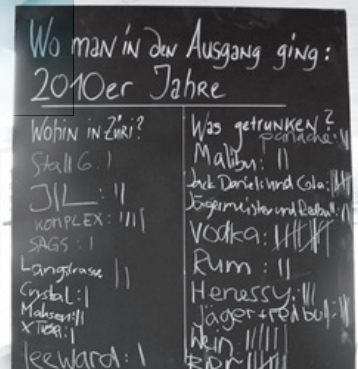 Wo man in den Ausgang ging:
2010er Jahre
Wohin in Züri?
Stall 6: |
JIL: ||
KOMPLEX: ||||
SAGS: |
Langstrasse ||
Crystal: |
Mahsen: ||
X TRA: |
leeward: |
Was getrunken?
panache: ||
Malibu: ||
Jack Daniels und Cola:
Jägermeister und Redbull:
Vodka:
Rum: ||
Henessy: |||
Jäger + redbull:
Wein: |||||
Bier